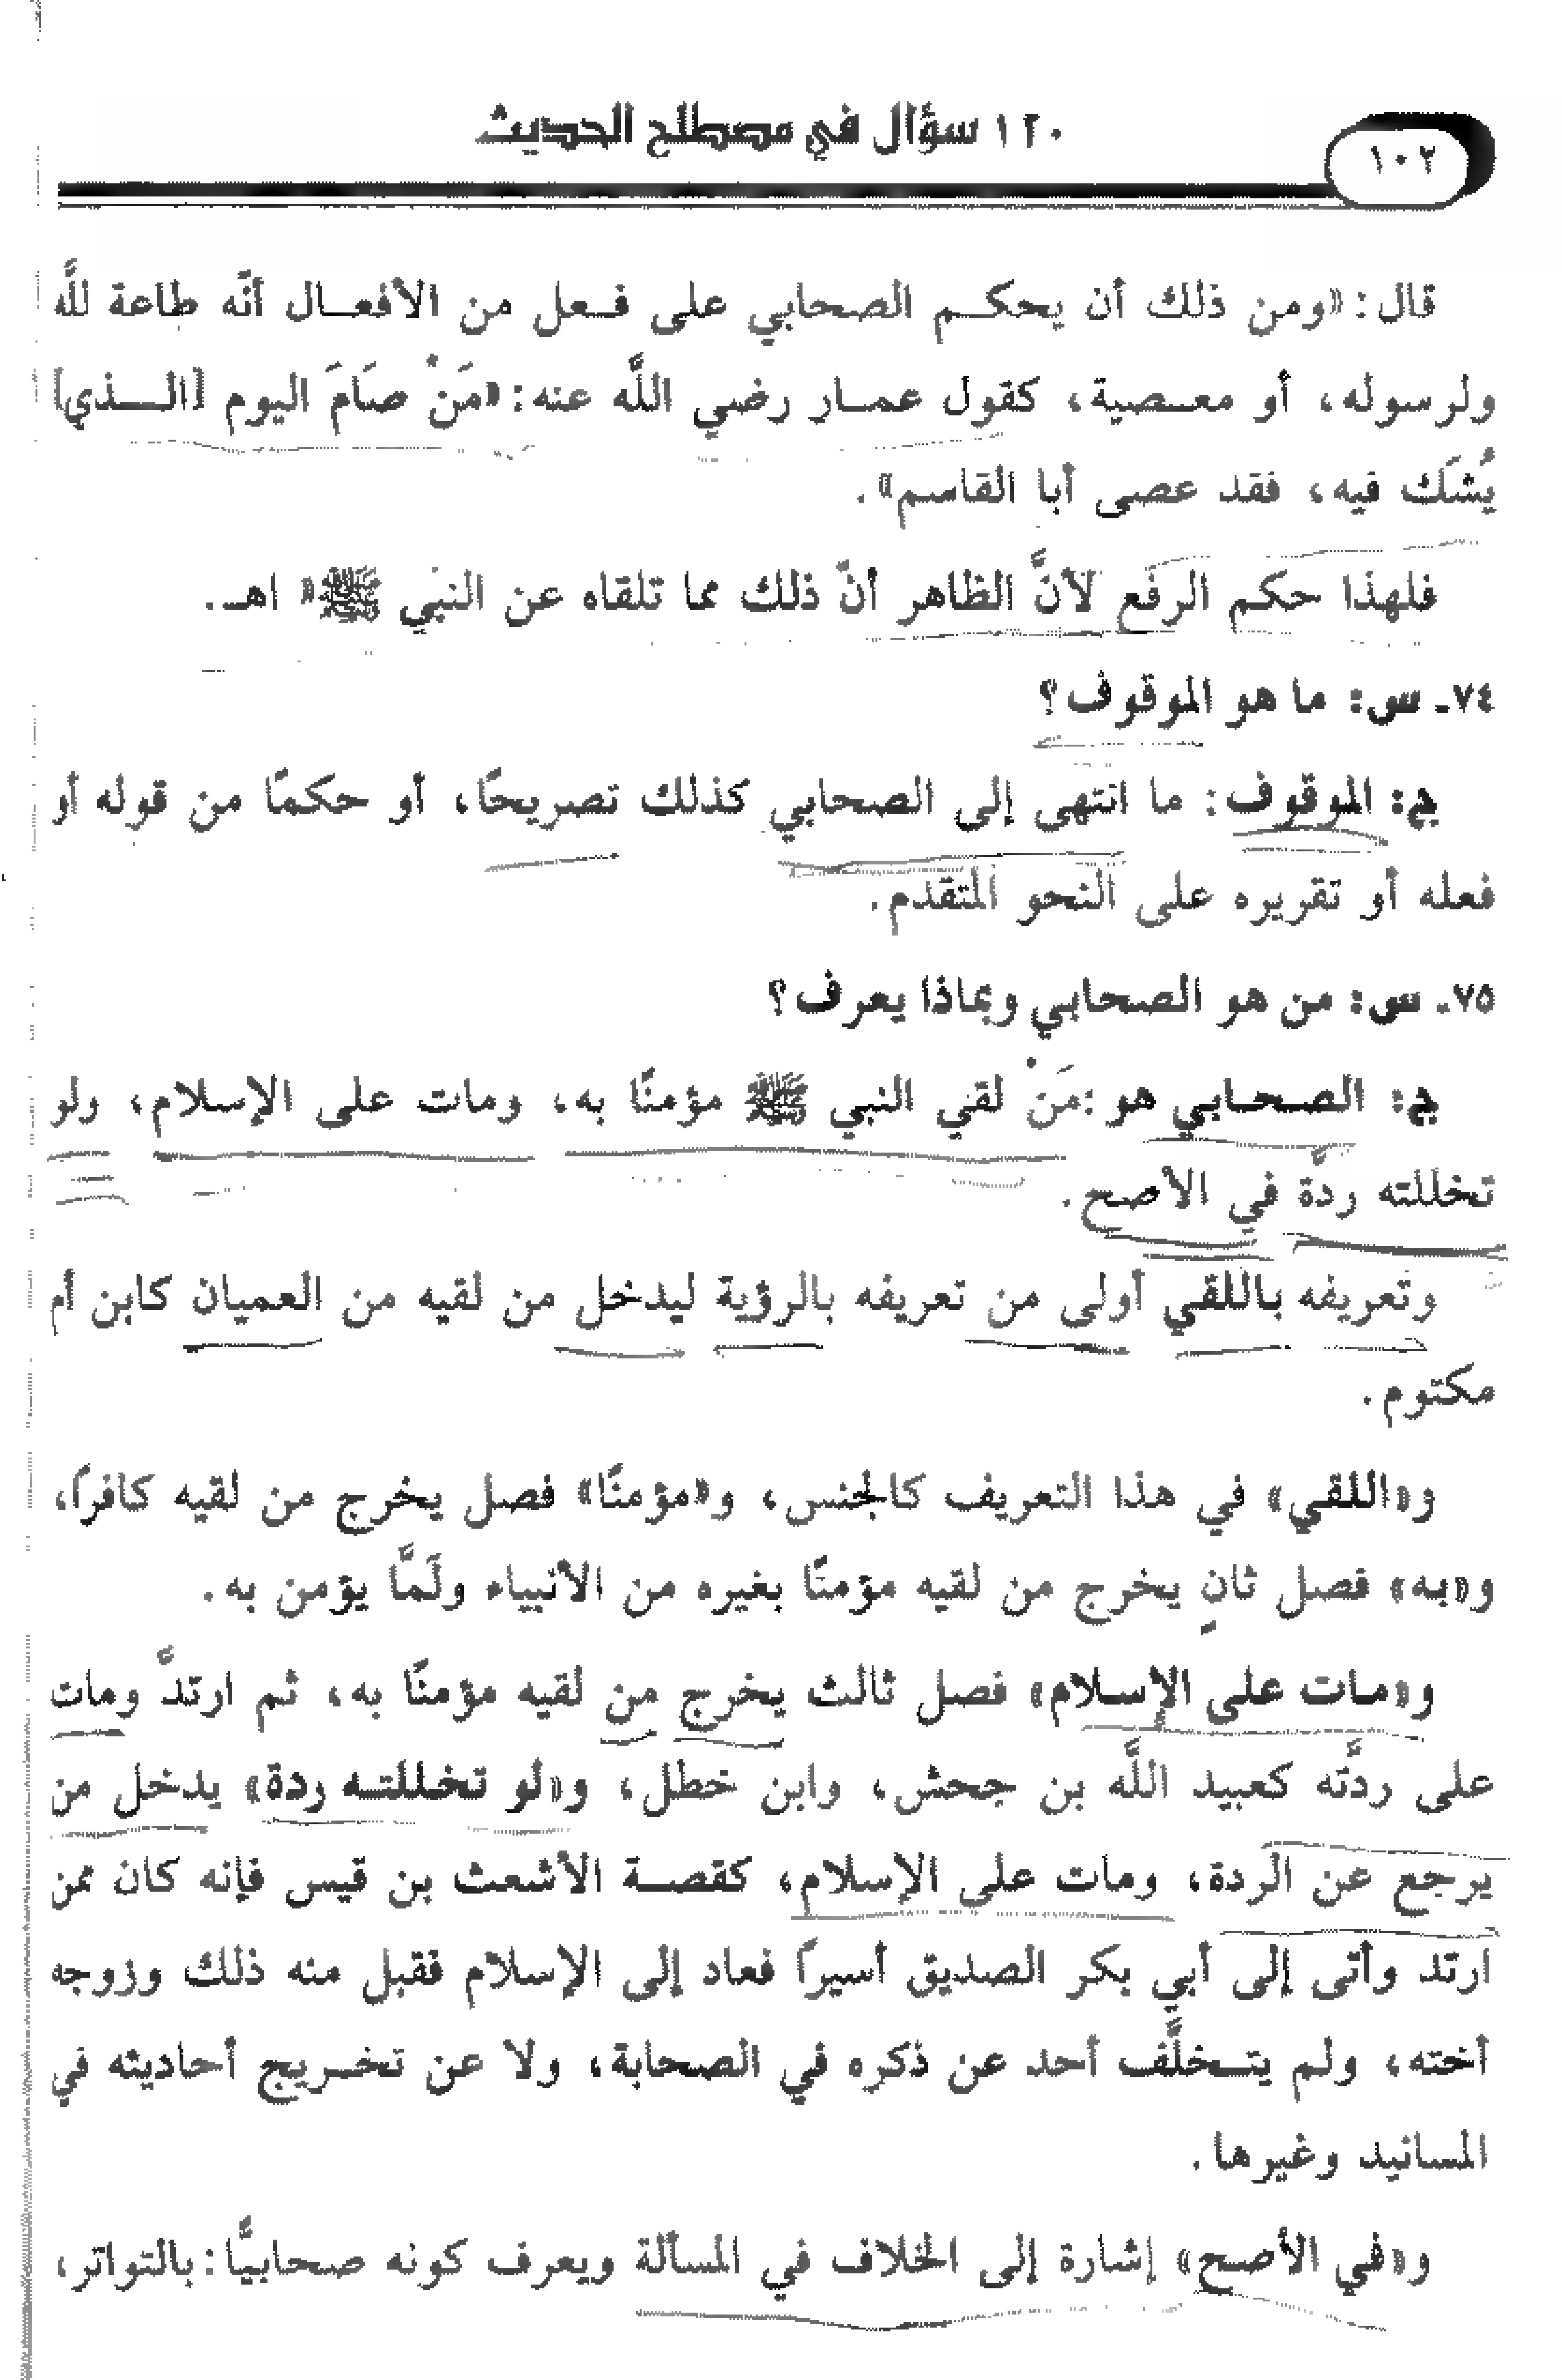 ١٢٠ سؤال في مصطلح الحديث
١٠٢
قال: «ومن ذلك أن يحكم الصحابي على فعل من الأفعال أنّه طاعة للَّه
ولرسوله، أو معصية، كقول عمار رضي اللَّه عنه: «مَنْ صَامَ اليوم [الذي]
يُشَك فيه، فقد عصى أبا القاسم».
فلهذا حكم الرفع لأنَّ الظاهر أنّ ذلك مما تلقاه عن النبي ﷺ» اهـ.
٧٤ـ س: ما هو الموقوف؟
ج: الموقوف: ما انتهى إلى الصحابي كذلك تصريحًا، أو حكمًا من قوله أو
فعله أو تقريره على النحو المتقدم.
٧٥ـ س: من هو الصحابي وبماذا يعرف؟
ج: الصحابي هو: مَنْ لقي النبي ﷺ مؤمنًا به، ومات على الإسلام، ولو
تخللته ردَّة في الأصح.
وتعريفه باللقي أولى من تعريفه بالرؤية ليدخل من لقيه من العميان كابن أم
مكتوم.
و«اللقي» في هذا التعريف كالجنس، و«مؤمنًا» فصل يخرج من لقيه كافرًا،
و«به» فصل ثانٍ يخرج من لقيه مؤمنًا بغيره من الأنبياء ولَمَّا يؤمن به.
و«مات على الإسلام» فصل ثالث يخرج من لقيه مؤمنًا به، ثم ارتدَّ ومات
على ردَّته كعبيد اللَّه بن جحش، وابن خطل، و«لو تخللته ردة» يدخل من
يرجع عن الردة، ومات على الإسلام، كقصة الأشعث بن قيس فإنه كان ممن
ارتد وأتى إلى أبي بكر الصديق أسيرًا فعاد إلى الإسلام فقبل منه ذلك وزوجه
أخته، ولم يتخلَّف أحد عن ذكره في الصحابة، ولا عن تخريج أحاديثه في
المسانيد وغيرها.
و«في الأصح» إشارة إلى الخلاف في المسألة ويعرف كونه صحابيًّا: بالتواتر،